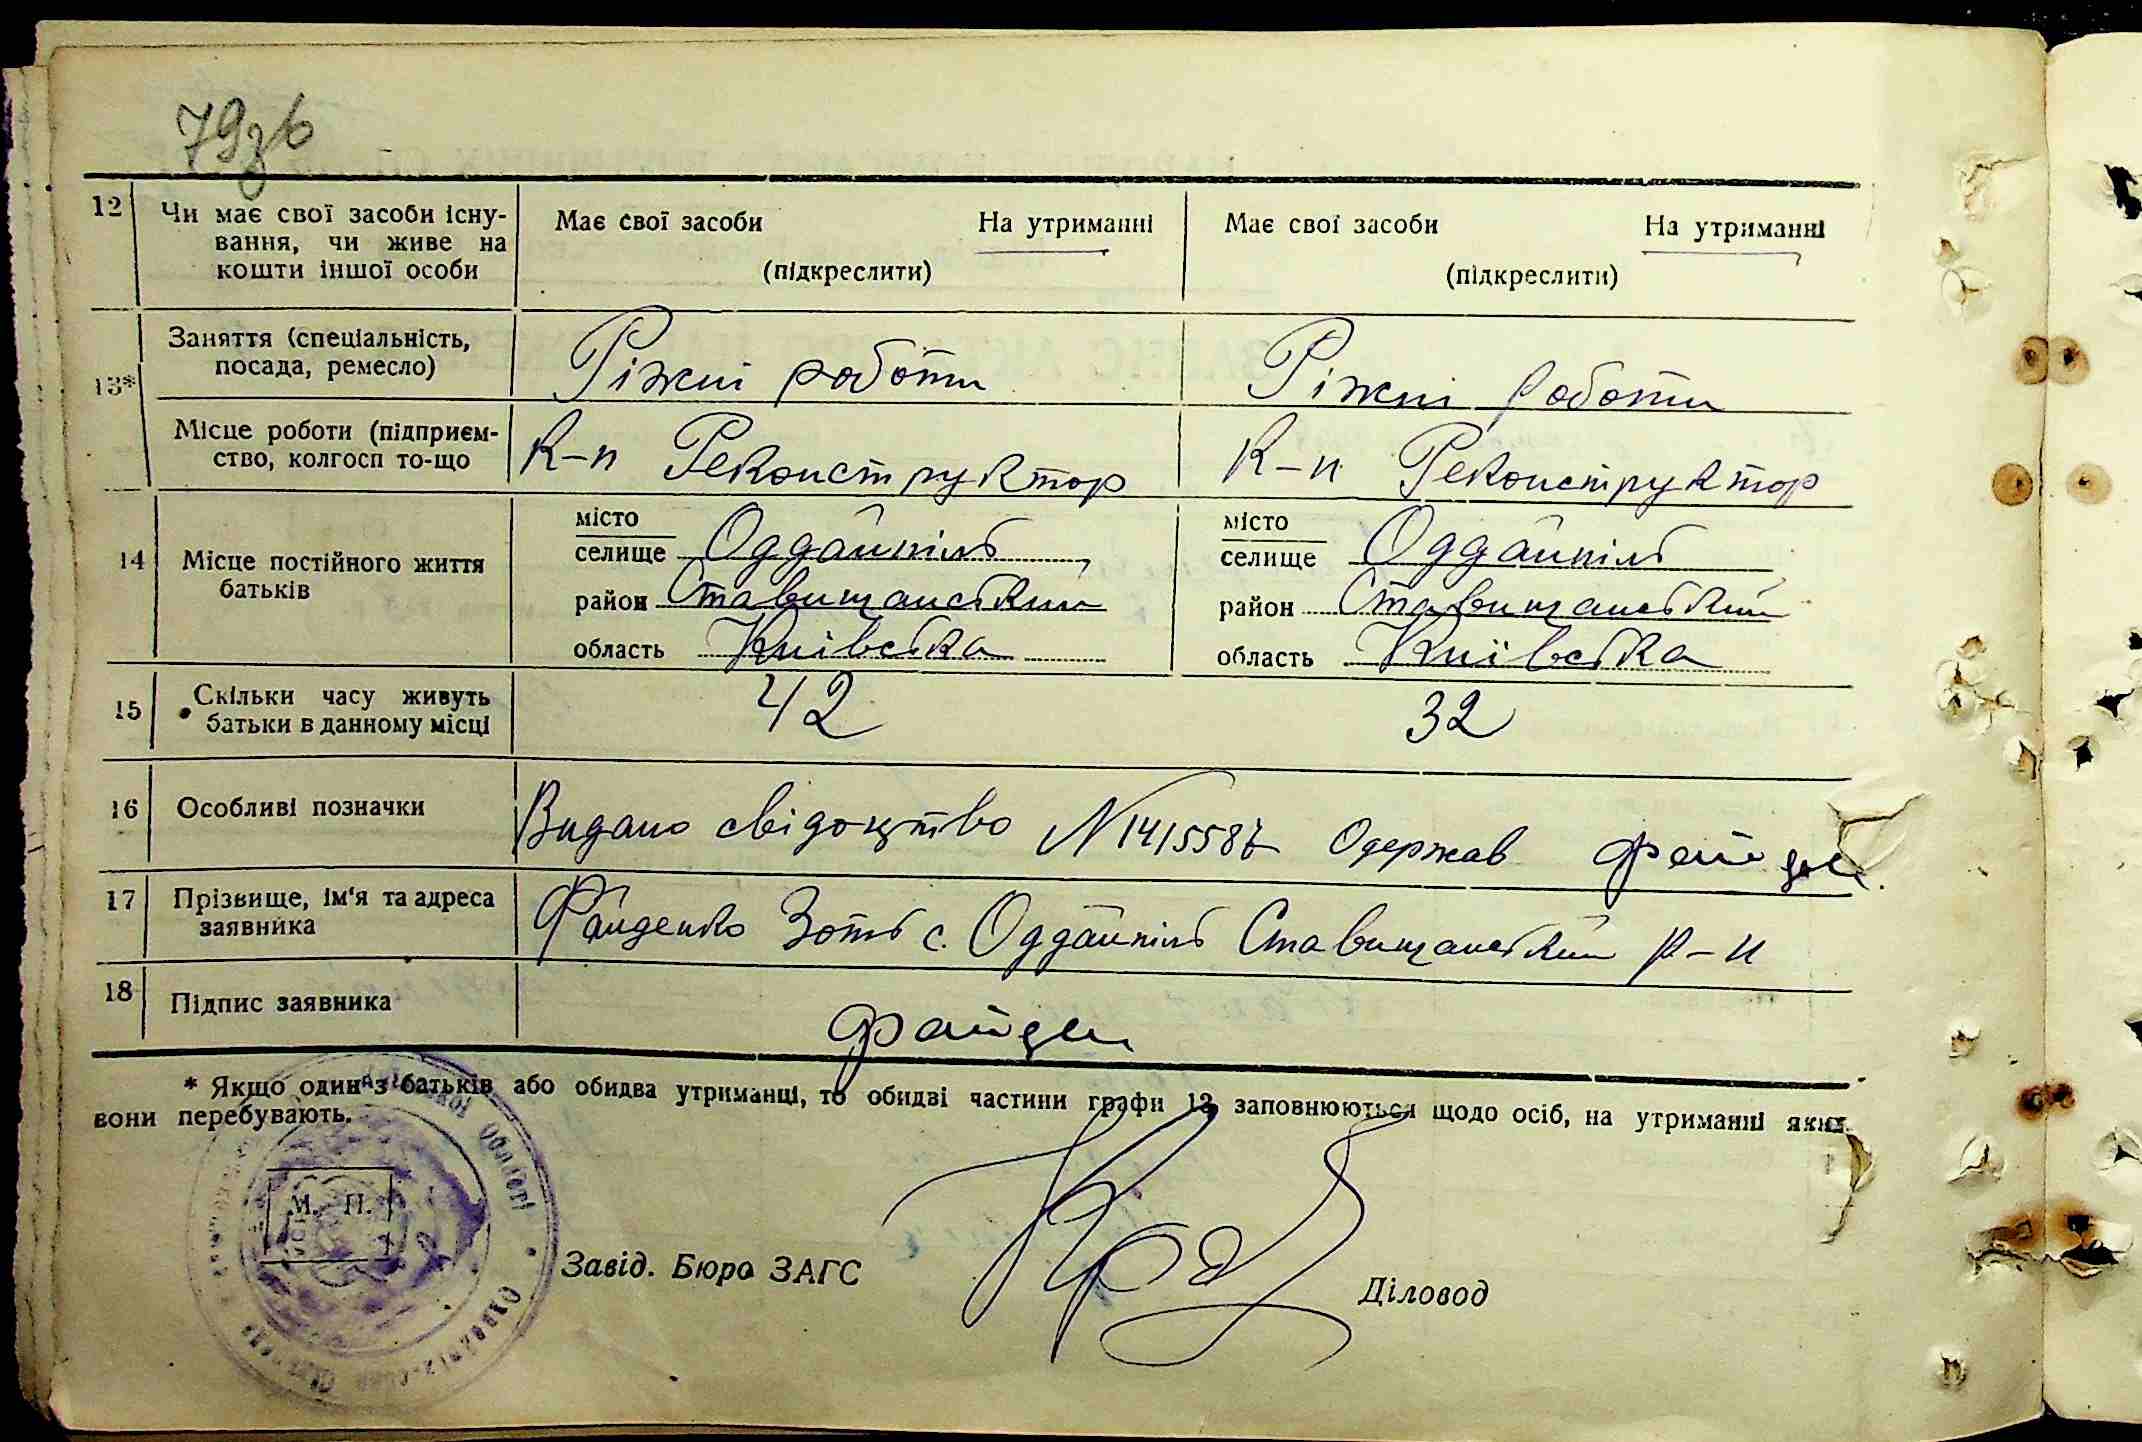 79зв
12 Чи має свої засоби існу- Має свої засоби На утриманні Має свої засоби На утриманні
вання, чи живе на
кошти іншої особи (підкреслити) (підкреслити)
13* Заняття (спеціальність, Ріжні роботи Ріжні роботи
посада, ремесло)
Місце роботи (підприєм- К-п Реконструктор К-п Реконструктор
ство, колгосп то-що
14 Місце постійного життя батьків
місто місто
селище Оддайпіль селище Оддайпіль
район Ставищанський район Ставищанський
область Київська область Київська
15 Скільки часу живуть 42 32
батьки в данному місці
16 Особливі позначки Видано свідоцтво N 1415587 Одержав Файден
17 Прізвище, ім'я та адреса Файденко Зоть с. Оддайпіль Ставищанський р-н
заявника
18 Підпис заявника Файден
* Якщо один з батьків або обидва утриманці, то обидві частини графи 13 заповнюються щодо осіб, на утриманні яких
вони перебувають.
М. П.
Завід. Бюро ЗАГС Діловод